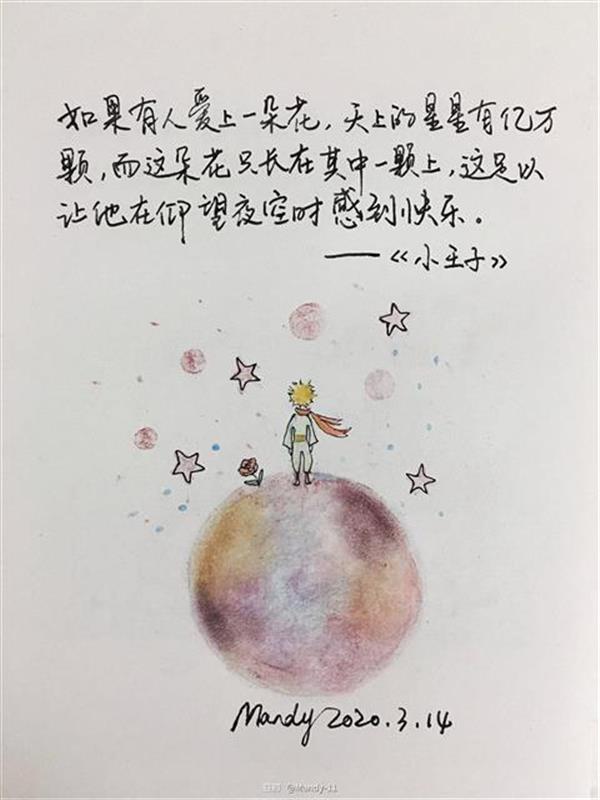 如果有人爱上一朵花，天上的星星有亿万
颗，而这朵花只长在其中一颗上，这足以
让他在仰望夜空时感到快乐。
——《小王子》
Mandy 2020.3.14
@Mandy-11